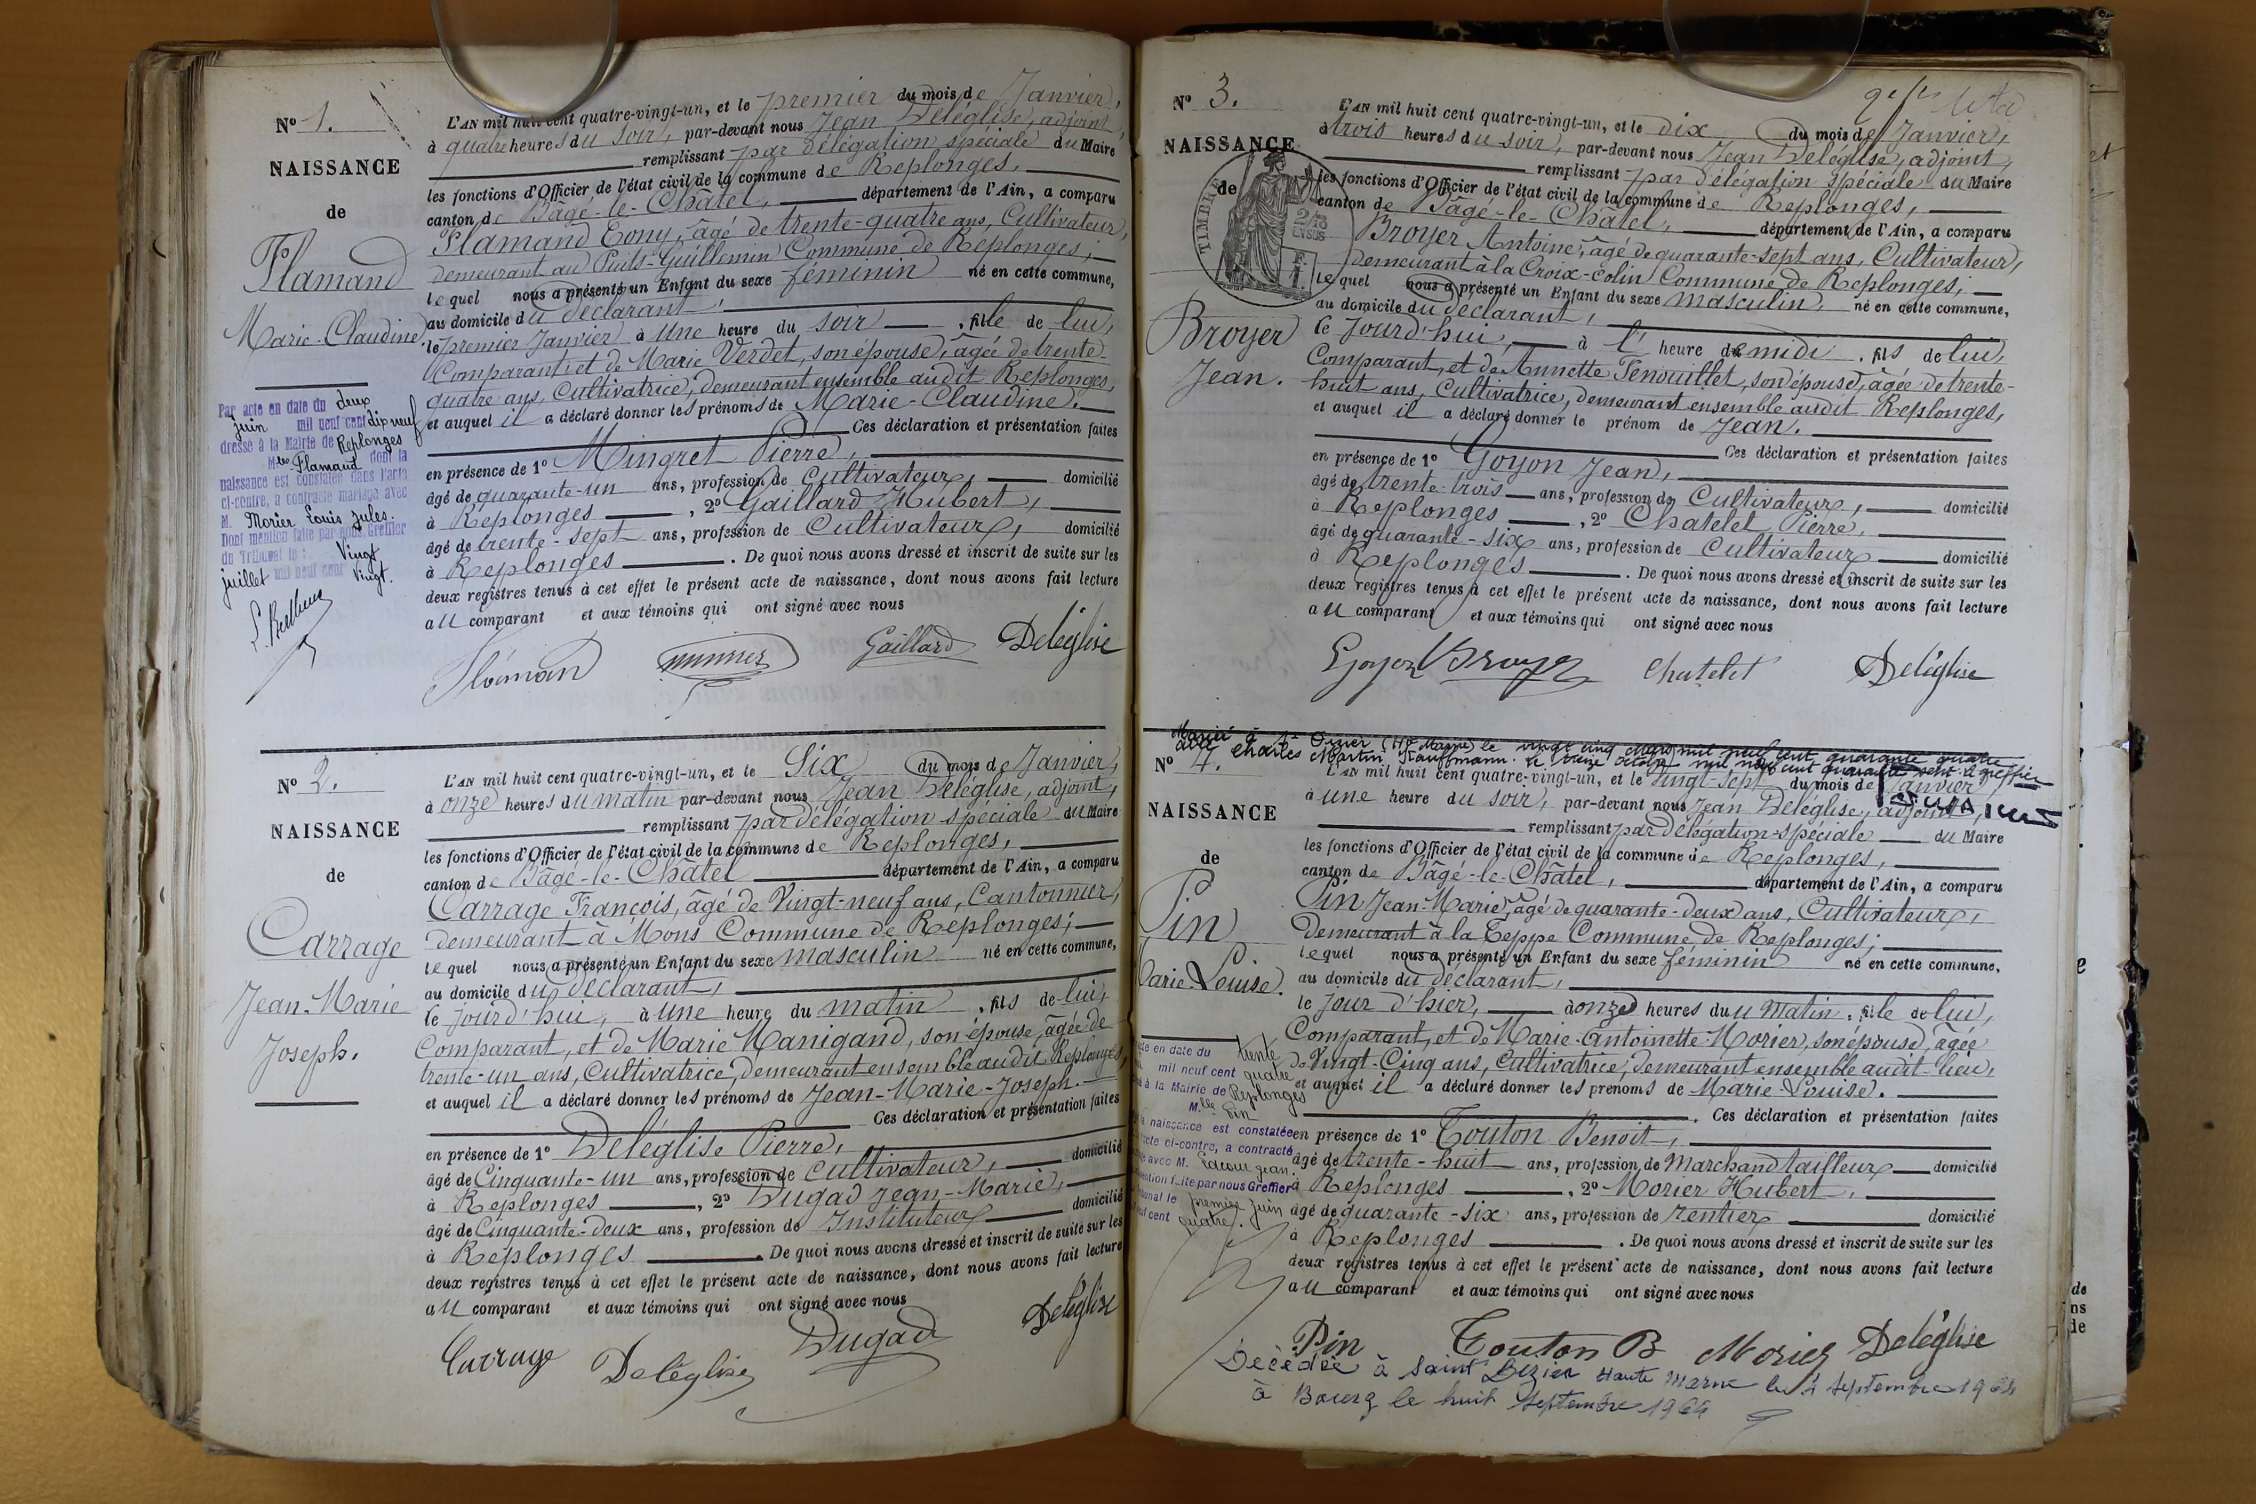 N° 1.
NAISSANCE
de
Flamand
Marie-Claudine.
Par acte en date du deux
juin mil neuf cent dix neuf
dressé à la Mairie de Replonges
Mlle Flamand dont la
naissance est constatée dans l'acte
ci-contre, a contracté mariage avec
M. Morier Louis Jules.
Dont mention faite par nous Greffier
du Tribunal le Vingt
juillet mil neuf cent vingt.
L'AN mil huit cent quatre-vingt-un, et le premier du mois de Janvier,
à quatre heures du soir, par-devant nous Jean Deléglise, adjoint,
remplissant par délégation spéciale du Maire
les fonctions d'Officier de l'état civil de la commune de Replonges,
canton de Bâgé-le-Châtel, département de l'Ain, a comparu
Flamand Tony, âgé de trente-quatre ans, Cultivateur,
demeurant au Puits-Guillemin Commune de Replonges;
lequel nous a présenté un Enfant du sexe féminin né en cette commune,
au domicile du déclarant,
le premier Janvier à une heure du soir, fille de lui,
Comparant et de Marie Verdet, son épouse, âgée de trente-
quatre ans, Cultivatrice, demeurant ensemble audit Replonges,
et auquel il a déclaré donner les prénoms de Marie-Claudine.
Ces déclaration et présentation faites
en présence de 1° Mingret Pierre,
âgé de quarante-un ans, profession de Cultivateur, domicilié
à Replonges, 2° Gaillard Hubert,
âgé de trente-sept ans, profession de Cultivateur, domicilié
à Replonges. De quoi nous avons dressé et inscrit de suite sur les
deux registres tenus à cet effet le présent acte de naissance, dont nous avons fait lecture
au comparant et aux témoins qui ont signé avec nous
Gaillard Deléglise
N° 2.
NAISSANCE
de
Carrage
Jean-Marie
Joseph.
L'AN mil huit cent quatre-vingt-un, et le Six du mois de Janvier,
à onze heures du matin par-devant nous Jean Deléglise, adjoint,
remplissant par délégation spéciale du Maire
les fonctions d'Officier de l'état civil de la commune de Replonges,
canton de Bâgé-le-Châtel département de l'Ain, a comparu
Carrage François, âgé de Vingt-neuf ans, Cantonnier,
demeurant à Mons Commune de Replonges;
lequel nous a présenté un Enfant du sexe masculin né en cette commune,
au domicile du déclarant,
le jourd'hui, à une heure du matin, fils de lui,
Comparant, et de Marie Manigand, son épouse, âgée de
trente-un ans, Cultivatrice, demeurant ensemble audit Replonges,
et auquel il a déclaré donner les prénoms de Jean-Marie-Joseph.
Ces déclaration et présentation faites
en présence de 1° Deléglise Pierre,
âgé de Cinquante-un ans, profession de Cultivateur, domicilié
à Replonges, 2° Dugad Jean-Marie,
âgé de Cinquante-deux ans, profession de Instituteur domicilié
à Replonges. De quoi nous avons dressé et inscrit de suite sur les
deux registres tenus à cet effet le présent acte de naissance, dont nous avons fait lecture
au comparant et aux témoins qui ont signé avec nous
Carrage Deléglise Dugad Deléglise
N° 3.
NAISSANCE
de
TIMBRE
Broyer
Jean.
L'AN mil huit cent quatre-vingt-un, et le dix du mois de Janvier,
à trois heures du soir, par-devant nous Jean Deléglise, adjoint,
remplissant par délégation spéciale du Maire
les fonctions d'Officier de l'état civil de la commune de Replonges,
canton de Bâgé-le-Châtel, département de l'Ain, a comparu
Broyer Antoine, âgé de quarante-sept ans, Cultivateur,
demeurant à la Croix-Colin Commune de Replonges,
lequel nous a présenté un Enfant du sexe masculin, né en cette commune,
au domicile du déclarant,
le jourd'hui, à l'heure de midi, fils de lui,
Comparant, et de Annette Tenouillet, son épouse, âgée de trente-
huit ans, Cultivatrice, demeurant ensemble audit Replonges,
et auquel il a déclaré donner le prénom de Jean.
Ces déclaration et présentation faites
en présence de 1° Goyon Jean,
âgé de trente-trois ans, profession de Cultivateur, domicilié
à Replonges, 2° Chatelet Pierre,
âgé de quarante-six ans, profession de Cultivateur domicilié
à Replonges. De quoi nous avons dressé et inscrit de suite sur les
deux registres tenus à cet effet le présent acte de naissance, dont nous avons fait lecture
au comparant et aux témoins qui ont signé avec nous
Goyon Broyer Chatelet Deléglise
le vingt cinq mars mil neuf cent quarante quatre
avec Charles Martin Kauffmann. le treize octobre mil neuf cent quarante sept le greffier
N° 4.
NAISSANCE
de
Pin
Marie-Louise.
acte en date du trente
mil neuf cent quatre
à la Mairie de Replonges
Mlle Pin
naissance est constatée
acte ci-contre, a contracté
avec M. Lacour Jean.
mention faite par nous Greffier
tribunal le premier juin
neuf cent quatre.
L'AN mil huit cent quatre-vingt-un, et le vingt-sept du mois de Janvier
à une heure du soir, par-devant nous Jean Deléglise, adjoint,
remplissant par délégation spéciale du Maire
les fonctions d'Officier de l'état civil de la commune de Replonges,
canton de Bâgé-le-Châtel, département de l'Ain, a comparu
Pin Jean-Marie, âgé de quarante-deux ans, Cultivateur,
demeurant à la Teppe Commune de Replonges;
lequel nous a présenté un Enfant du sexe féminin né en cette commune,
au domicile du déclarant,
le jour d'hier, à onze heures du matin, fille de lui,
Comparant, et de Marie-Antoinette Morier, son épouse, âgée
de Vingt-Cinq ans, Cultivatrice, demeurant ensemble audit-lieu,
et auquel il a déclaré donner les prénoms de Marie-Louise.
Ces déclaration et présentation faites
en présence de 1° Touton Benoit,
âgé de trente-huit ans, profession de Marchand tailleur domicilié
à Replonges, 2° Morier Hubert,
âgé de quarante-six ans, profession de rentier domicilié
à Replonges. De quoi nous avons dressé et inscrit de suite sur les
deux registres tenus à cet effet le présent acte de naissance, dont nous avons fait lecture
au comparant et aux témoins qui ont signé avec nous
Pin Touton B Morier Deléglise
Décédée à Saint Dizier Haute Marne le 4 septembre 1964
à Bourg le huit septembre 1964